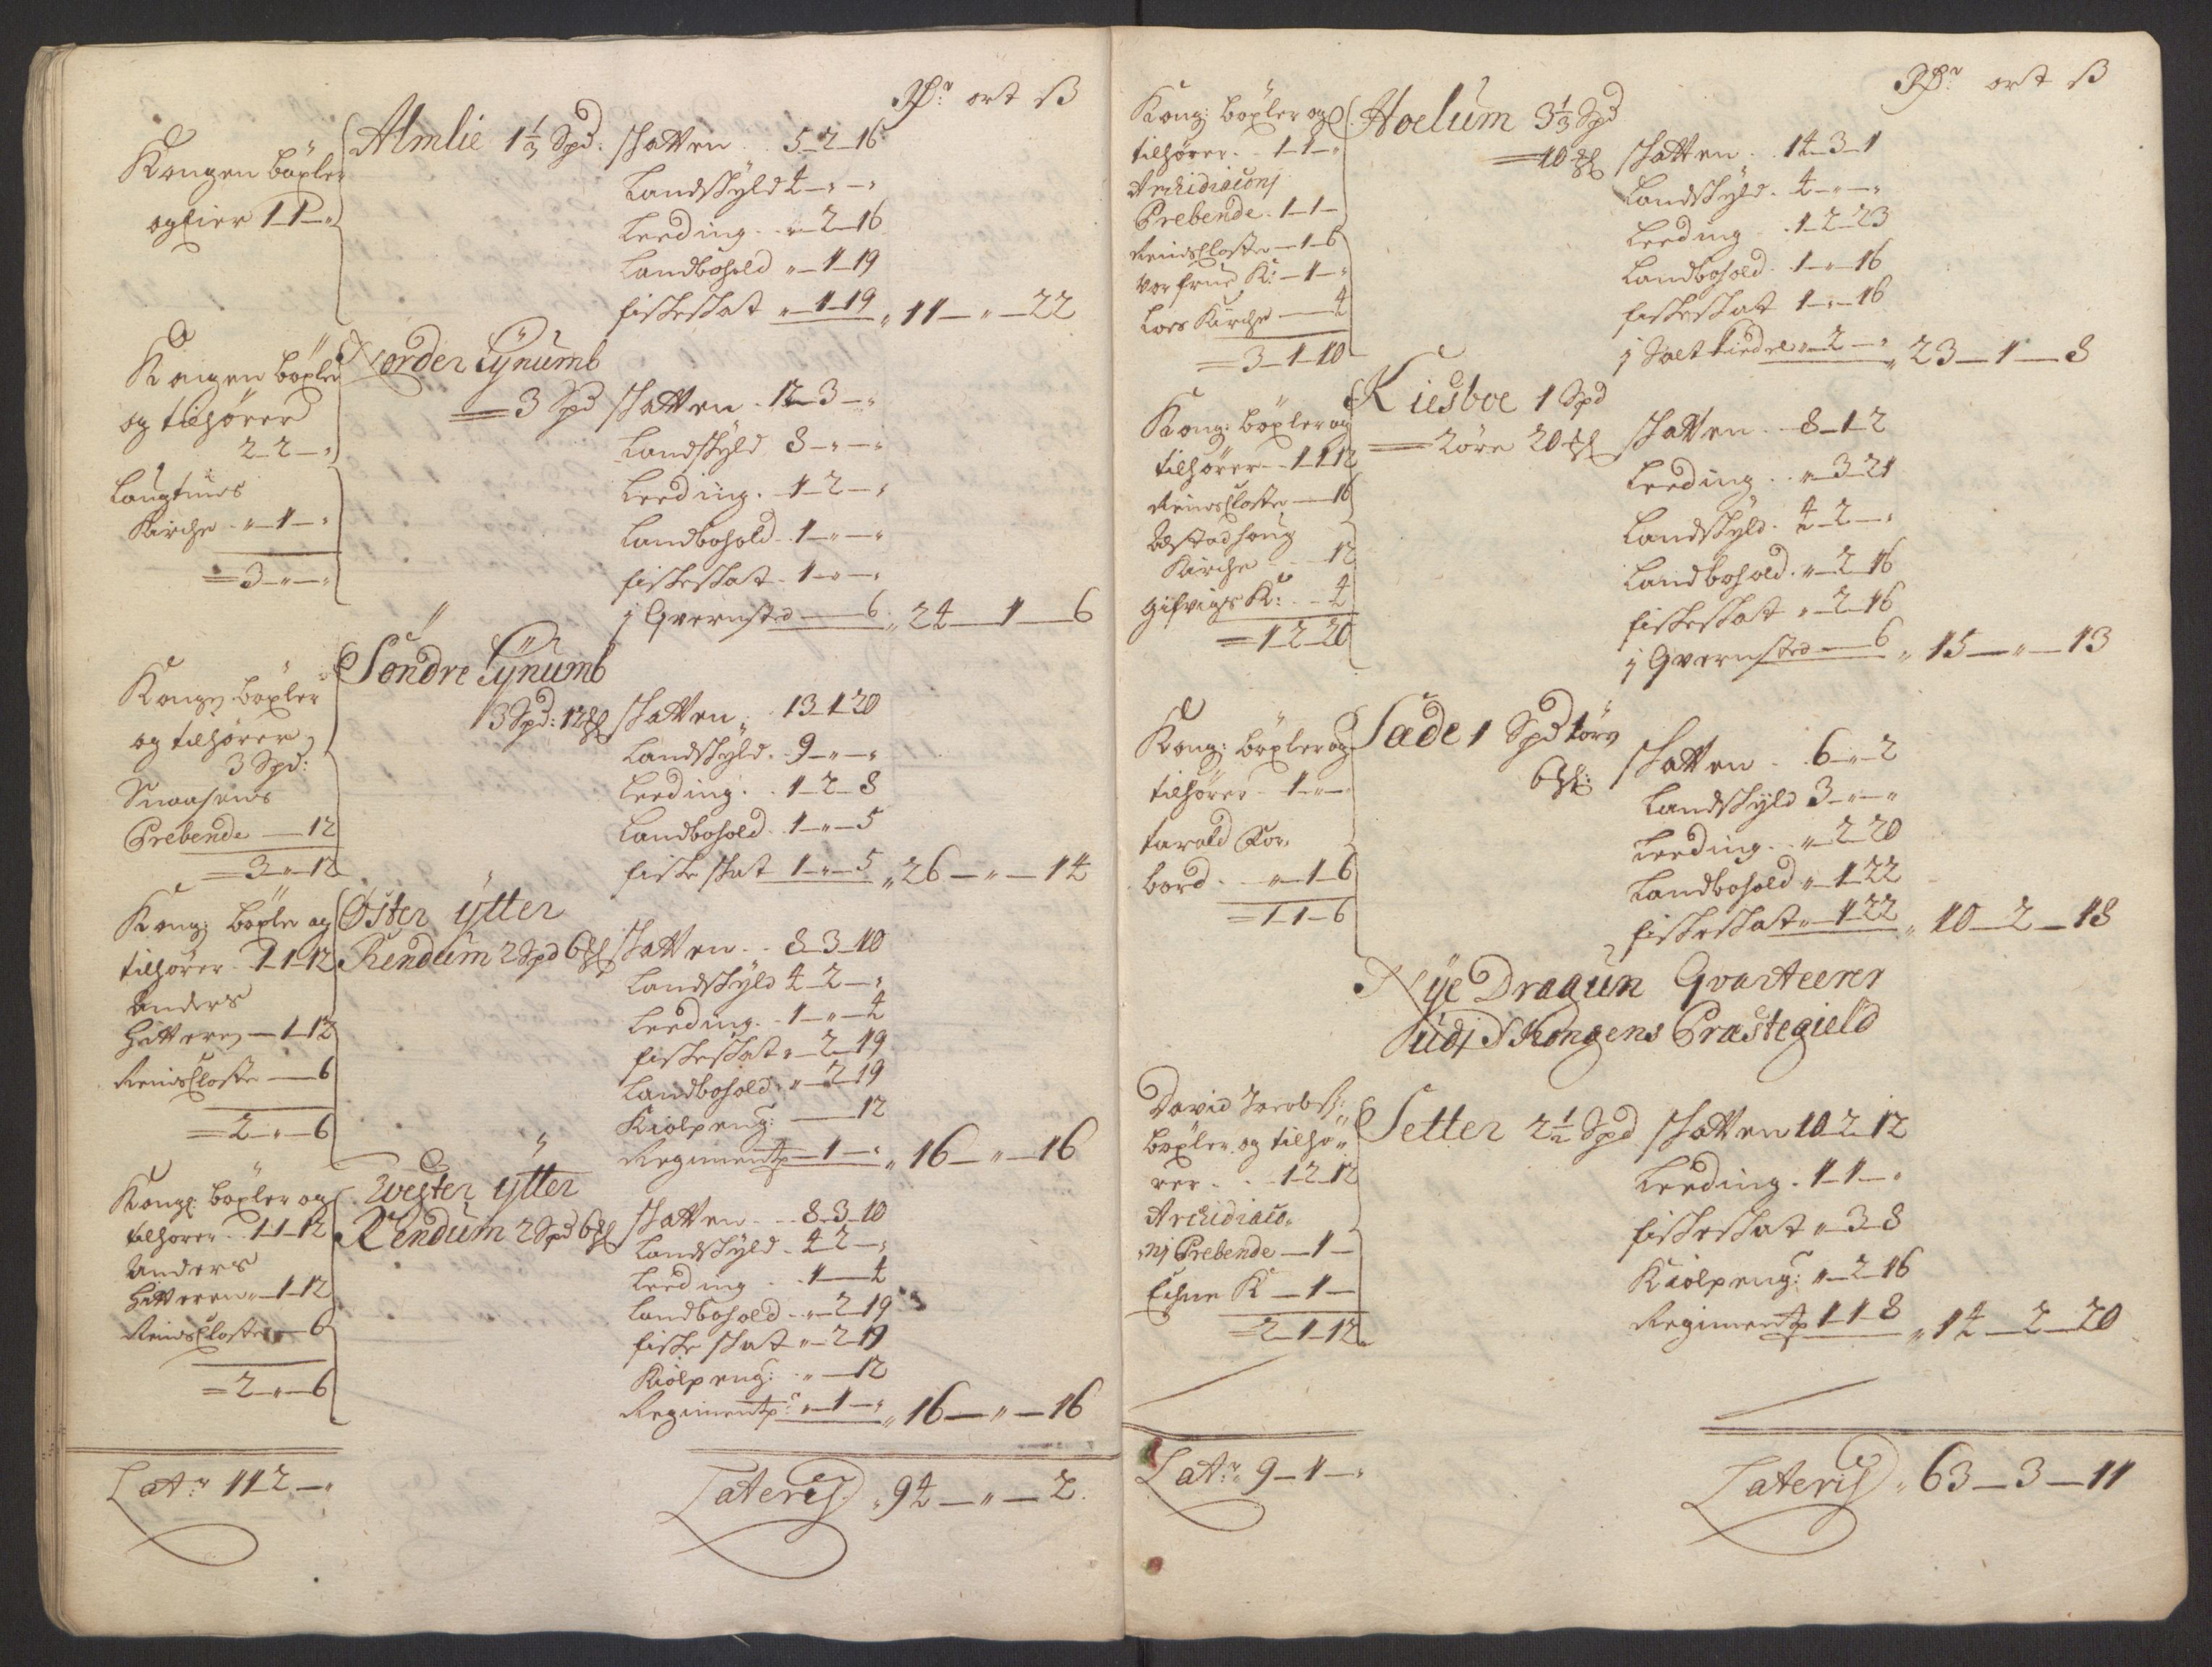 Rdr ort ß
Kongen böxler
og Eier 1 1 – „
Almlie 1 1/3 Spd. Skatten 5 – 2 – 16
Landskyld 4 – „ – „
Leeding „ – 2 – 16
Landbohold „ – 1 – 19
fiskeskat „ – 1 – 19 „ 11 – „ – 22
Kongen böxler
og tilhører
2 – 2 – „
Laugtuns
Kirche „ – 1 – „
= 3 – „ – „
Norder Lÿnumb
= 3 Spd Skatten 12 – 3 – „
Landskyld 8 – „ – „
Leeding 1 – 2 – „
Landbohold 1 – „ – „
fiskeskat 1 – „ – „
j Qvernsted – 6 „ 24 – 1 – 6
Kongen böxler
og tilhører
3 Spd:
Snaasens
Prebende – 12
= 3 – „ – 12
Söndre Lÿnumb
3 Spd: 12 Skatten 13 – 1 – 20
Landskyld 9 – „ – „
Leeding 1 – 2 – 8
Landbohold 1 – „ – 5
fiske skat 1 – „ – 5 „ 26 – „ – 14
Kong: böxler og
tilhører 1 – 1 – 12
Anders
Hitteren – 1 – 12
Reinscloster – 6
= 2 – „ – 6
Öster ÿtter
Rendum 2 Spd 6 Skatten 8 – 3 – 10
Landskyld 4 – 2 – „
Leeding 1 – „ – 4
fiskeskat „ – 2 – 19
Landbohold „ – 2 – 19
Kiölpeng: – 12
Regimentp – 1 – „ „ 16 – „ – 16
Kong: böxler og
tilhører 1 – 1 – 12
Anders
Hitteren „ – 1 – 12
Reinscloster – 6
= 2 – „ – 6
Wester ÿtter
Rendum 2 Spd 6 Skatten 8 – 3 – 10
Landskyld 4 – 2 – „
Leeding 1 – 4
Landbohold „ – 2 – 19
fiske skat „ – 2 – 19
Kiölpeng: „ – 12
Regimentp: „ – 1 – „ „ 16 – „ – 16
Latr 11 2 – „
Lateris „ 94 – „ – 2
Rdr ort ß
Kong: böxler og
tilhører 1 – 1 – „
Archidiaconj
Prebende 1 – 1 –
Reinscloster – 1 – 6
Vor frue K: – 1 – „
Loes Kirche – 4
= 3 – 1 – 10
Hoelum 3 1/3 Spd
= 10 Skatten 14 – 3 – 1
Landskyld 4 – „ – „
Leeding 1 – 2 – 23
Landbohold 1 – „ – 16
fiskeskat 1 – „ – 16
j Salt kiedel „ – 2 – „ „ 23 – 1 – 8
Kong: böxler og
tilhører 1 – 1 – 12
Reinscloster – 16
Kirche 12
K: 4
= 1 – 2 – 20
Kiesboe 1 Spd
= 2 öre 20 Skatten 8 – 1 – 2
Leeding „ – 3 – 21
Landskyld 4 – 2 – „
Landbohold „ – 2 – 16
fiskeskat „ – 2 – 16
j Qvernsted – 6 „ 15 – „ – 13
Kong: böxler og
tilhører 1 – „ –
Tarald For„
bord „ – 1 – 6
= 1 – 1 – 6
Sade 1 Spd 1 öre
6 Skatten 6 – „ – 2
Landskyld 3 – „ – „
Leeding „ – 2 – 20
Landbohold „ – 1 – 22
fiskeskat „ – 1 – 22 „ 10 – 2 – 18
Nÿe Dragun Qvarteerer
udj Skongens Præstegield
David Jacobss:
böxler og tilhø„
rer 1 – 2 – 12
Archidiaco„
nj Prebende – 1 –
K – 1 –
= 2 – 1 – 12
Setter 2 1/2 Spd Skatten 10 – 2 – 12
Leeding 1 – 1 – „
fiskeskat „ – 3 – 8
Kiölpeng: „ – 2 – 16
Regimentp 1 – 1 – 8 „ 14 – 2 – 20
Latr: 9 – 1 – „
Lateris „ 63 – 3 – 11